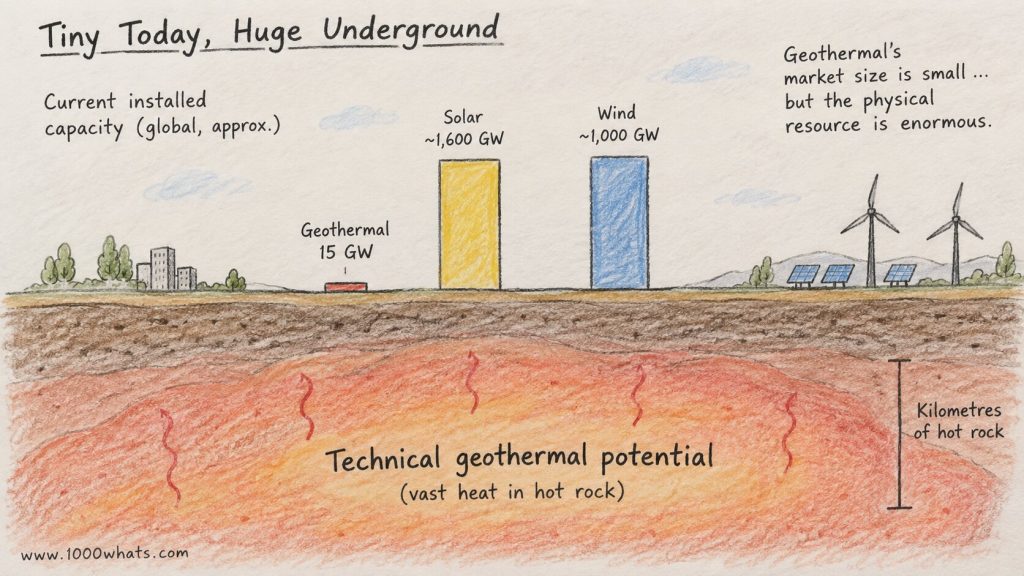 Tiny Today, Huge Underground
Current installed
capacity (global, approx.)
Geothermal
15 GW
Solar
~1,600 GW
Wind
~1,000 GW
Geothermal's
market size is small ...
but the physical
resource is enormous.
Kilometres
of hot rock
Technical geothermal potential
(vast heat in hot rock)
www.1000whats.com